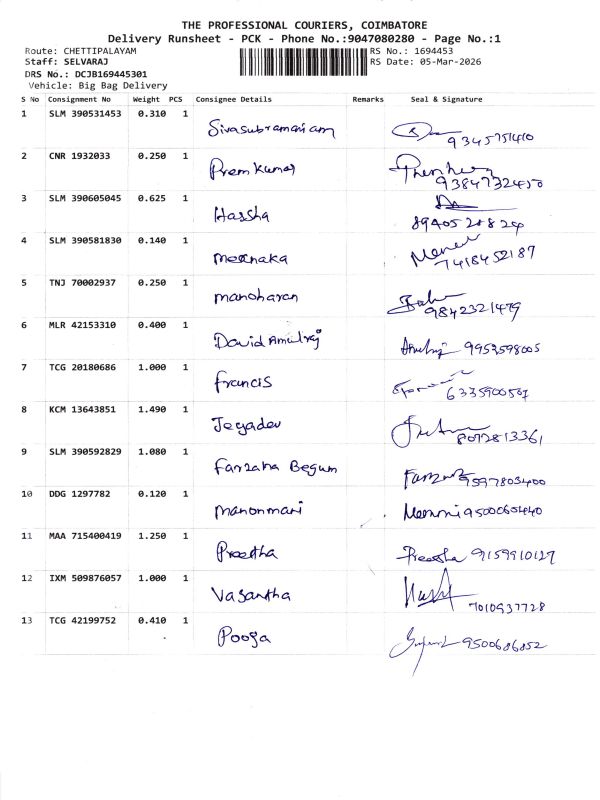 THE PROFESSIONAL COURIERS, COIMBATORE
Delivery Runsheet - PCK - Phone No.:9047080280 - Page No.:1
Route: CHETTIPALAYAM RS No.: 1694453
Staff: SELVARAJ RS Date: 05-Mar-2026
DRS No.: DCJB169445301
Vehicle: Big Bag Delivery
S No Consignment No Weight PCS Consignee Details Remarks Seal & Signature
1 SLM 390531453 0.310 1 Sivasubramaniam 9345751410
2 CNR 1932033 0.250 1 Prem Kumar 9384732450
3 SLM 390605045 0.625 1 Hassha 8940528824
4 SLM 390581830 0.140 1 meenaka 7418452187
5 TNJ 70002937 0.250 1 manoharan 9842321479
6 MLR 42153310 0.400 1 David Amulraj 9952598005
7 TCG 20180686 1.000 1 francis
8 KCM 13643851 1.490 1 Jeyadev 8072813361
9 SLM 390592829 1.080 1 Farzana Begum 9597803400
10 DDG 1297782 0.120 1 manonmari 9500065440
11 MAA 715400419 1.250 1 Preetha Preetha 9159910127
12 IXM 509876057 1.000 1 Vasantha 7010937728
13 TCG 42199752 0.410 1 Pooja 9500686852